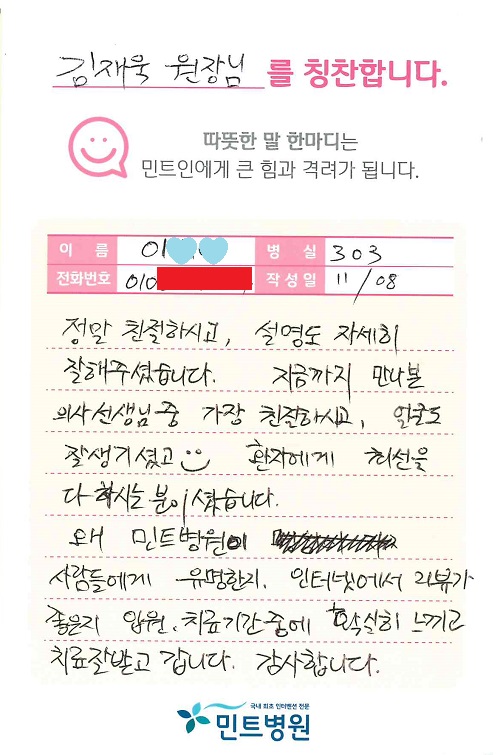 김재욱 원장님 를 칭찬합니다.
따뜻한 말 한마디는
민트인에게 큰 힘과 격려가 됩니다.
이 름 이 병 실 303
전화번호 010 작성일 11/08
정말 친절하시고, 설명도 자세히
잘해주셨습니다. 지금까지 만나본
의사선생님중 가장 친절하시고, 얼굴도
잘생기셨고 환자에게 최선을
다 하시는 분이셨습니다.
왜 민트병원이
사람들에게 유명한지. 인터넷에서 리뷰가
좋은지 입원.치료기간중에 확실히 느끼고
치료잘받고 갑니다. 감사합니다.
국내 최초 인터벤션 전문
민트병원